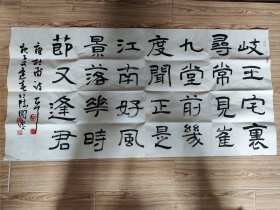 岐王宅裏
尋常見崔
九堂前幾
度聞正是
江南好風
景落華時
節又逢君
唐杜甫詩